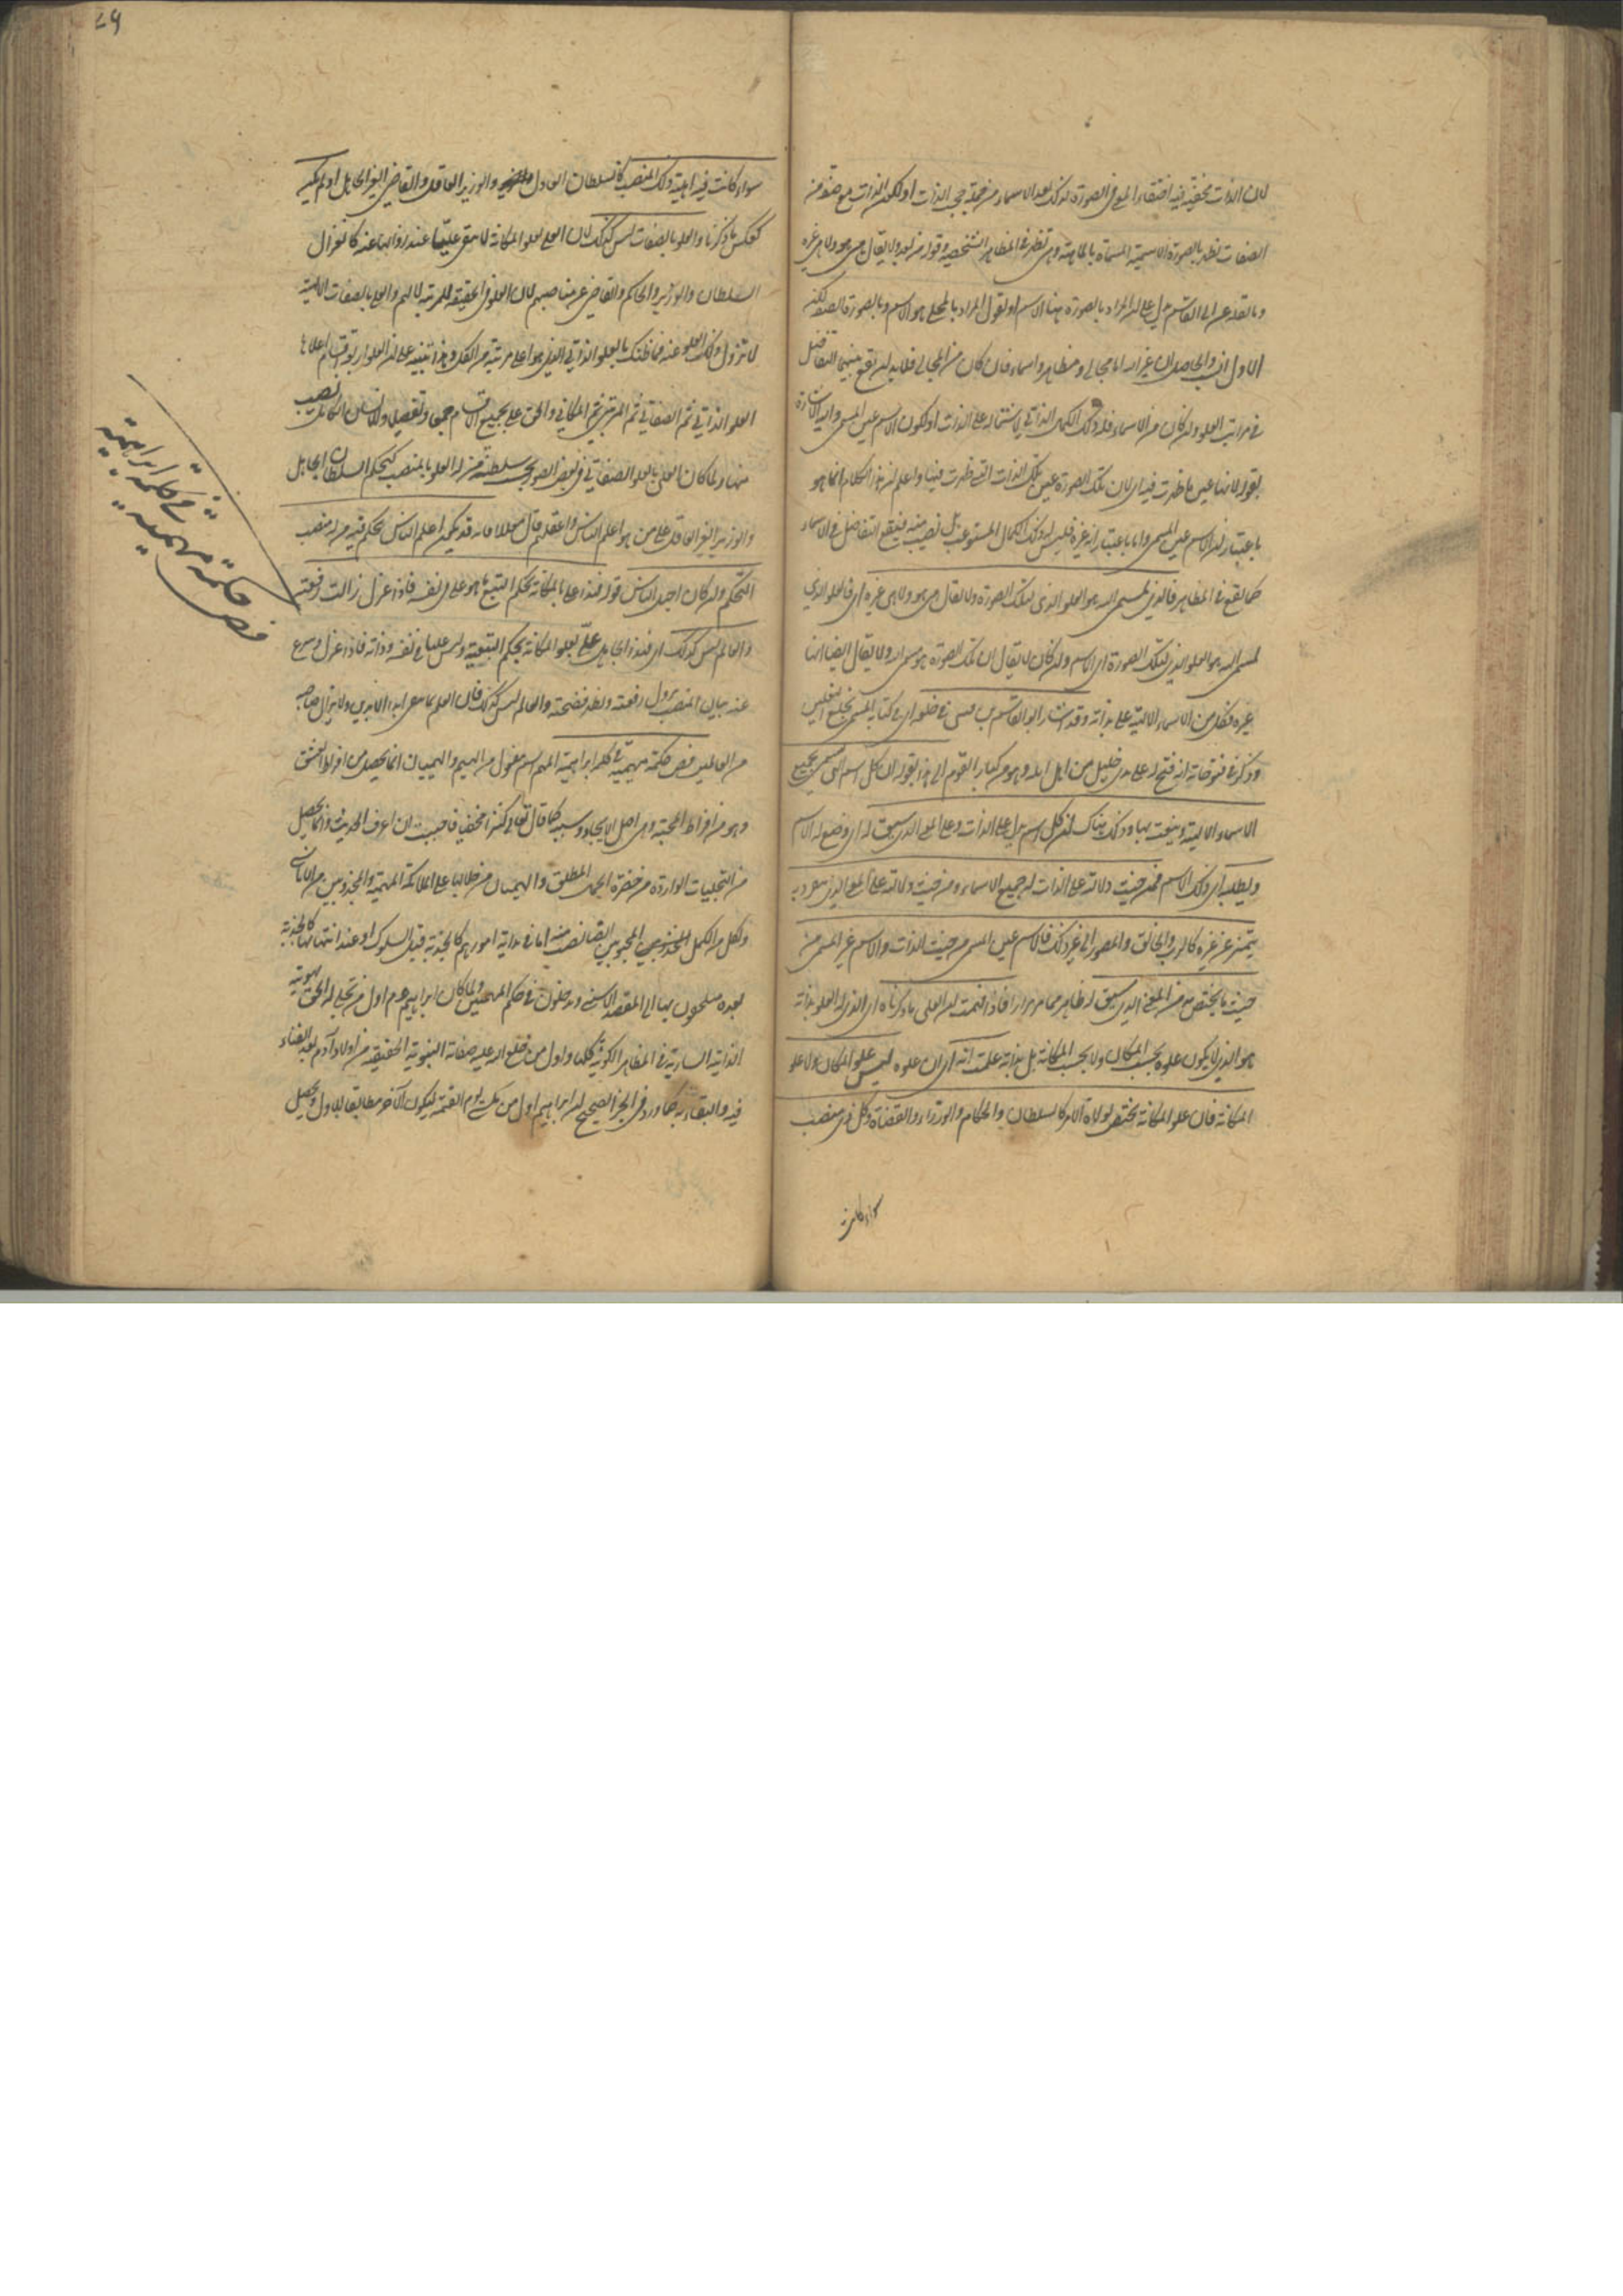 لان الذات مخفية فيه اختفاء المعنى في الصورة لذلك بعد الاسماء من جملة حجب الذات او لكون الذات مع صفة من
الصفات تظهر بالصورة الاسمية المسماة بالماهية وهى تظهر في المظاهر الشخصية وقوله من بعد ولا يقال هى هو ولا هى غيره
وبالقدعن ابى القاسم يدل على ان المراد بالصورة هنا الاسم او نقول المراد بالمجلى هو الاسم وبالصورة الصفة لكنه
الاول انسب والحاصل ان غير الله اما مجالى ومظاهر واسماء فان كان من المجالى فلا بد ان تقع بينهما التفاضل
في مراتب العلو وان كان من الاسماء فله ذلك الكمال الذاتي لاشتماله على الذات او لكون الاسم عين المسمى واليه الاشارة
بقوله لانها عين ما ظهرت فيه اى لان تلك الصورة عين تلك الذات التى ظهرت فيها واعلم ان هذا الكلام انما هو
باعتبار ان الاسم عين المسمى واما باعتبار انه غيره فليس له ذلك الكمال المستوعب بل نصيب منه فيقع التفاضل في الاسماء
كما يقع في المظاهر فالذى لمسمى الله هو العلو الذى لتلك الصورة ولا يقال هى هو ولا هى غيره اى فالعلو الذي
لمسمى الله هو العلو الذى لتلك الصورة اى الاسم وان كان لا يقال ان تلك الصورة هو مسمى الله ولا يقال ايضا انها
غيره فكل من الاسماء الالهية على بذاته وقد اشار ابو القاسم بن قسى في خلعه اى في كتابه المسمى بخلع النعلين
وذكر في فتوحاته انه فتح له على يدى خليل من اهل لبله وهو من كبار القوم الى هذا بقوله ان كل اسم الهى يتسمى بجميع
الاسماء الالهية وينعت بها وذلك هناك ان كل اسم يدل على الذات وعلى المعنى الذى سيق له اى وضع له الاسم
ويطلبه اى ذلك الاسم فمن حيث دلالته على الذات له جميع الاسماء ومن حيث دلالته على المعنى الذى ينفرد به
يتميز عن غيره كالرب والخالق والمصور الى غير ذلك فالاسم عين المسمى من حيث الذات والاسم غير المسمى من
حيث ما يختص به من المعنى الذى سيق له ظاهر مما مر مرارا فاذا فهمت ان العلى ما ذكرناه اى الذى له العلو بذاته
ما هو الذي لا يكون علوه بحسب المكان ولا بحسب المكانة بل بذاته علمت انه اى ان علوه ليس علو المكان ولا علو
المكانة فان علو المكانة يختص بولاة الامر كالسلطان والحكام والوزراء والقضاة وكل ذى منصب
سواء كانت
٤٩
سواء كانت فيه اهلية ذلك المنصب كالسلطان العادل والوزير العاقل والقاضى الغير الجاهل او لم يكن
كعكس ما ذكرنا والعلو بالصفات ليس كذلك لان العلى بعلو المكانة لا يبقى عليّا عند زوالها عنه كانعزال
السلطان والوزير والحاكم والقاضى عن مناصبهم لان العلو في الحقيقة للمرتبة لا لهم والعلو بالصفات الالهية
لا تزول ذلك العلو عنه فما ظنك بالعلو الذاتى الذى هو اعلى مرتبة من الكل وهذا تنبيه على ان العلو اربعة اقسام اعلاها
العلو الذاتي ثم الصفاتي ثم المرتبى ثم المكاني والحق على بجميع الاقسام جمعا وتفصيلا وللانسان الكامل نصيب
منها ولما كان العلى بالعلو الصفاتي في بعض الصور تحت سلطنة من له العلو بالمنصب كتحكم السلطان الجاهل
والوزير الغير العاقل على من هو اعلم الناس واعقلهم قال معللا فانه قد يكون اعلم الناس يحكم فيه من له منصب
التحكم وان كان اجهل الناس فهذا على بالمكانة بحكم التبع ما هو على في نفسه فاذا عزل زالت رفعته
والعالم ليس كذلك اى فهذا الجاهل علىّ بعلو المكانة بحكم التبعية وليس عليا في نفسه وذاته فاذا عزل وسرع
عنه بيان المنصب يزول رفعته وتظهر فضيحته والعالم ليس كذلك فان العلم باق معه ابد الابدين ولا يزال صاحبه
من العالين فص حكمة مهيمية في كلمة ابراهيمية المهيم اسم مفعول من الهيم والهيمان انما يحصل من افراط العشق
وهو من افراط المحبة وهى اصل الايجاد وسببه كما قال تعالى كنت كنزا مخفيا فاحببت ان اعرف الحديث وانما يحصل
من التجليات الواردة من حضرة الجمال المطلق والهيمان من غلباتها على الملائكة المهيمة والمجذوبين من الاناسى
ولكل من الكمل المجذوبين المحبوبين ايضا نصيب منه اما في بداية امورهم كالجذبة قبل السلوك او عند انتهائها كالجذبة
بعده ملحقون بها الى المقصد الاسنى ويدخلون في حكم المهيمين ولما كان ابراهيم عم اول من تجلى له الحق بهويته
الذاتية السارية في المظاهر الكونية كلها واول من خلع الله عليه صفاته الثبوتية الحقيقية من اولاد آدم بعد الفناء
فيه والبقاء به كما ورد في الخبر الصحيح ان ابراهيم اول من يكسى يوم القيمة ليكون الآخر مطابقا للاول ويحصل
فص حكمة مهيمية في كلمة ابراهيمية